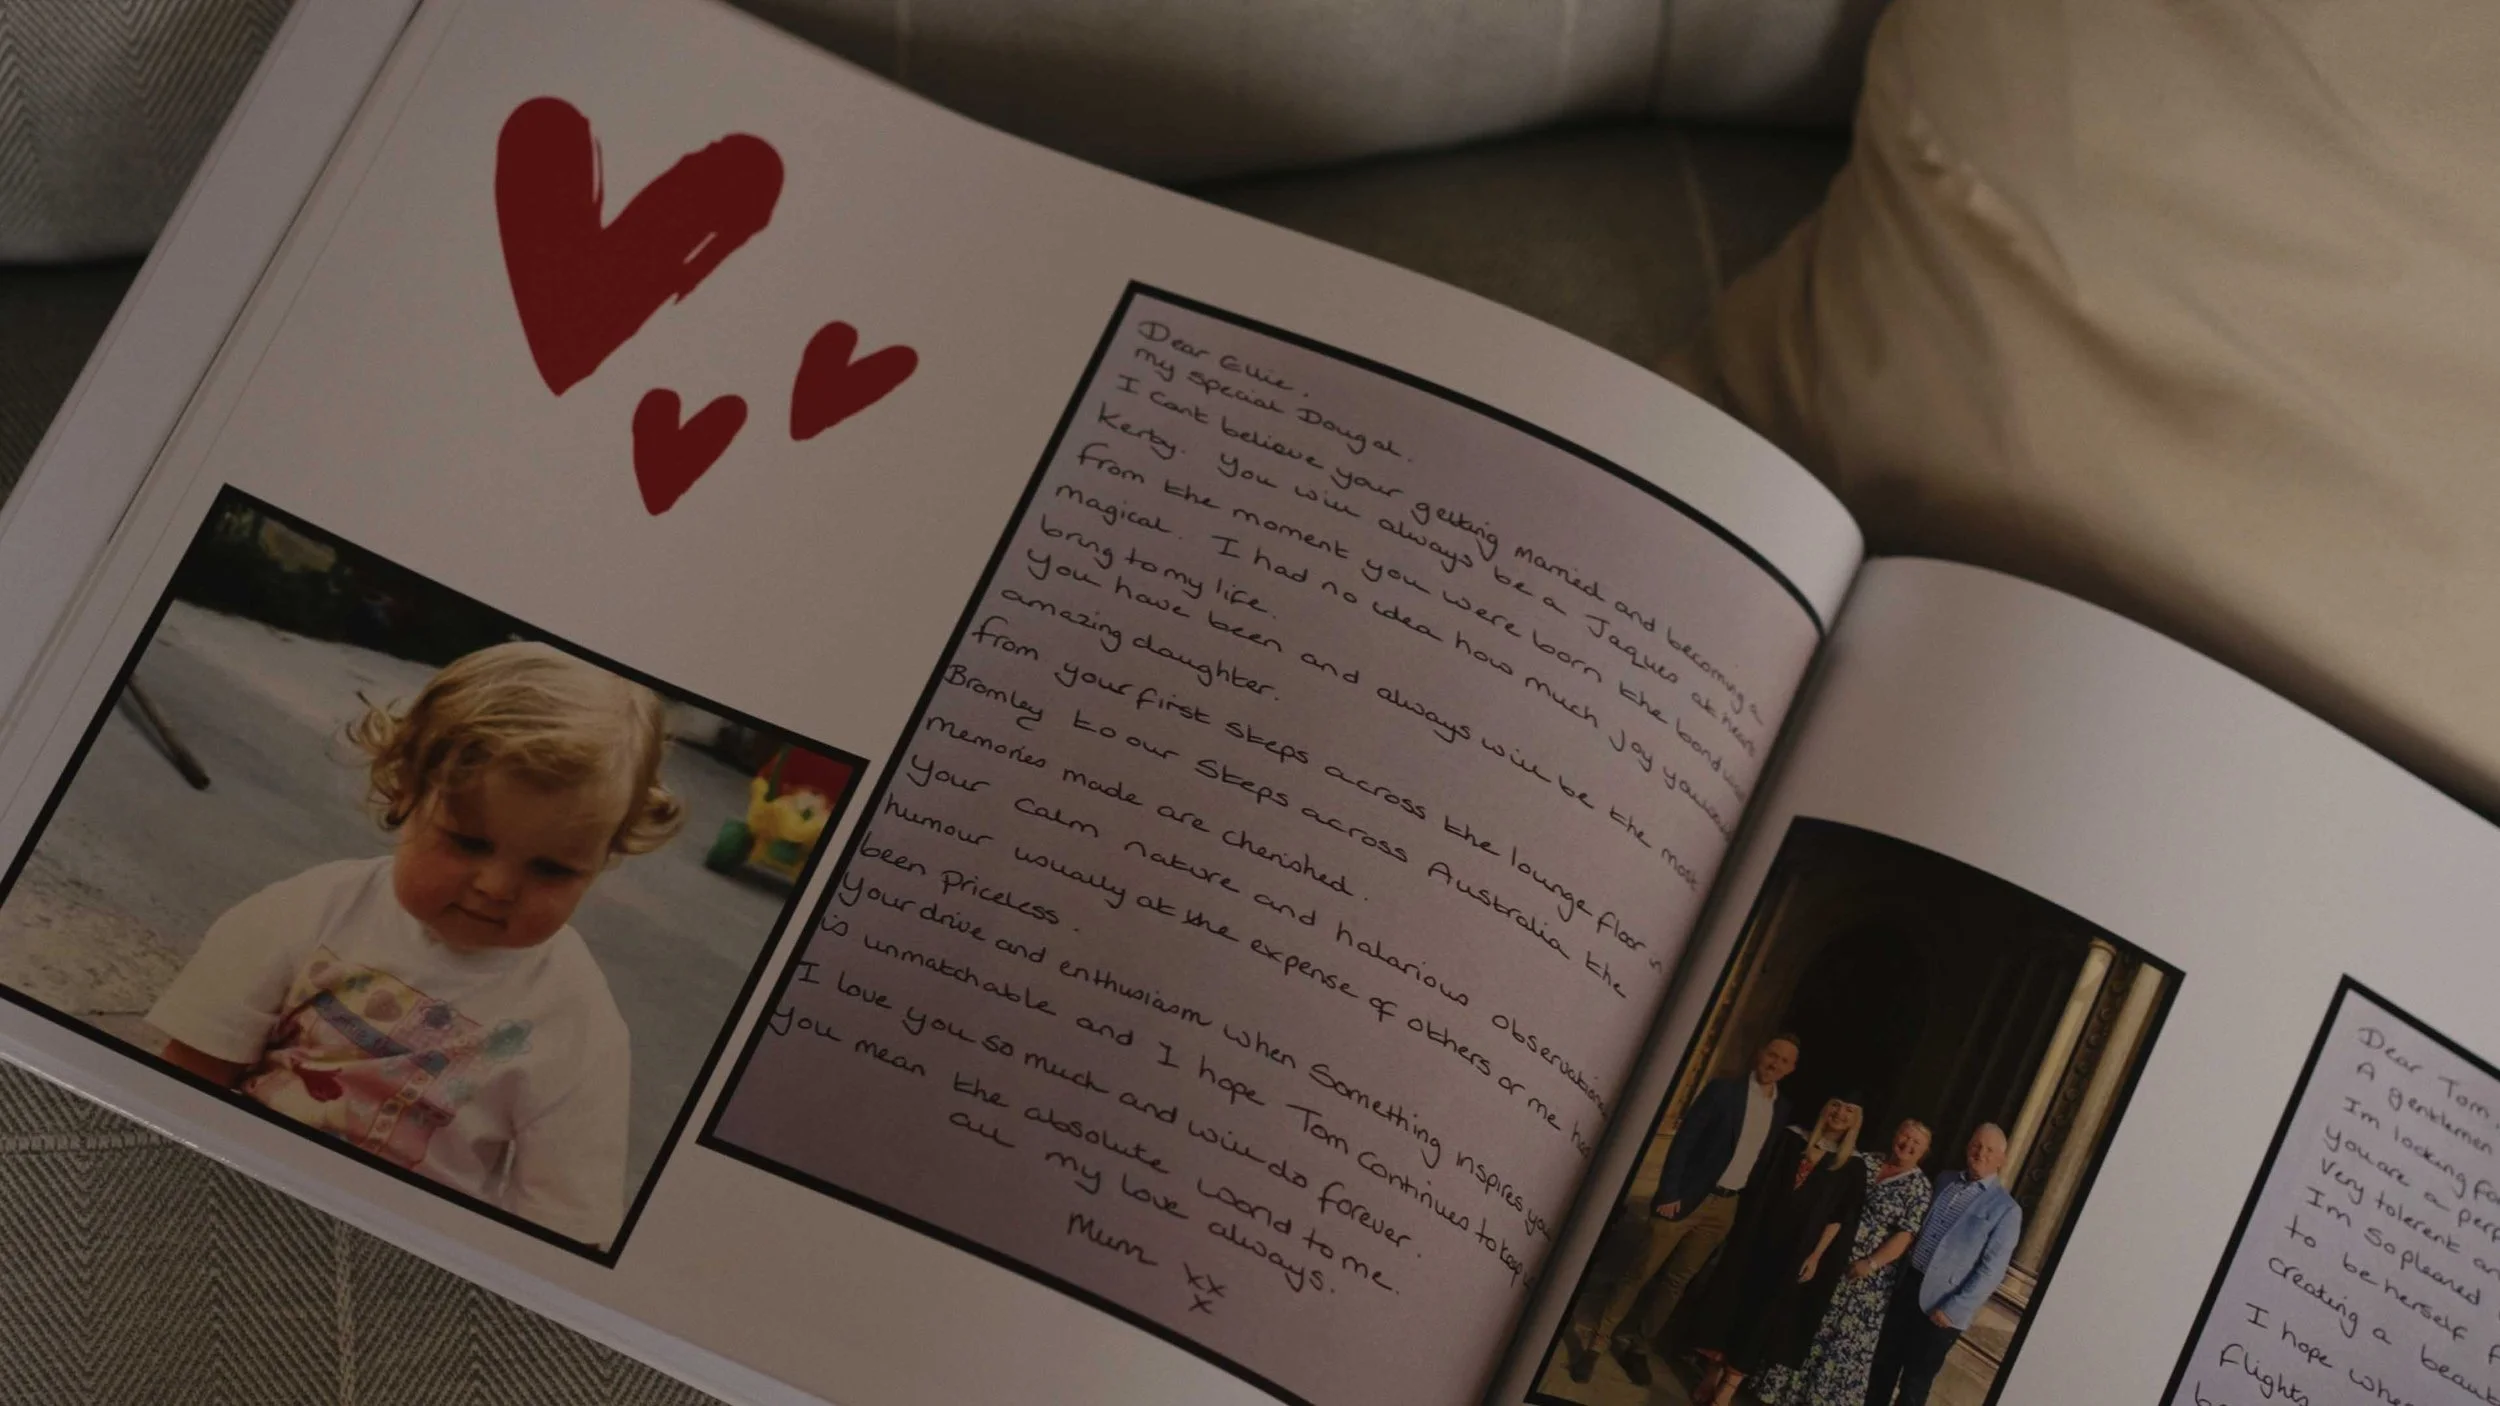 Dear Ellie,
my special Dougal.
I cant believe your getting married and becoming a
Kerby. You will always be a Jaques at heart
from the moment you were born the bond was
magical. I had no idea how much joy you would
bring to my life.
you have been and always will be the most
amazing daughter.
from your first steps across the lounge floor in
Bromley to our steps across Australia the
memories made are cherished.
your calm nature and halarious observational
humour usually at the expense of others or me has
been priceless.
Your drive and enthusiasm when something inspires you
is unmatchable and I hope Tom continues to keep
I love you so much and will do forever.
you mean the absolute world to me.
all my love always.
Mum xx
x
Dear Tom,
A gentlemen
Im looking fo
you are a perf
very tolerent an
Im so pleased
to be herself
creating a beaut
I hope when
flights